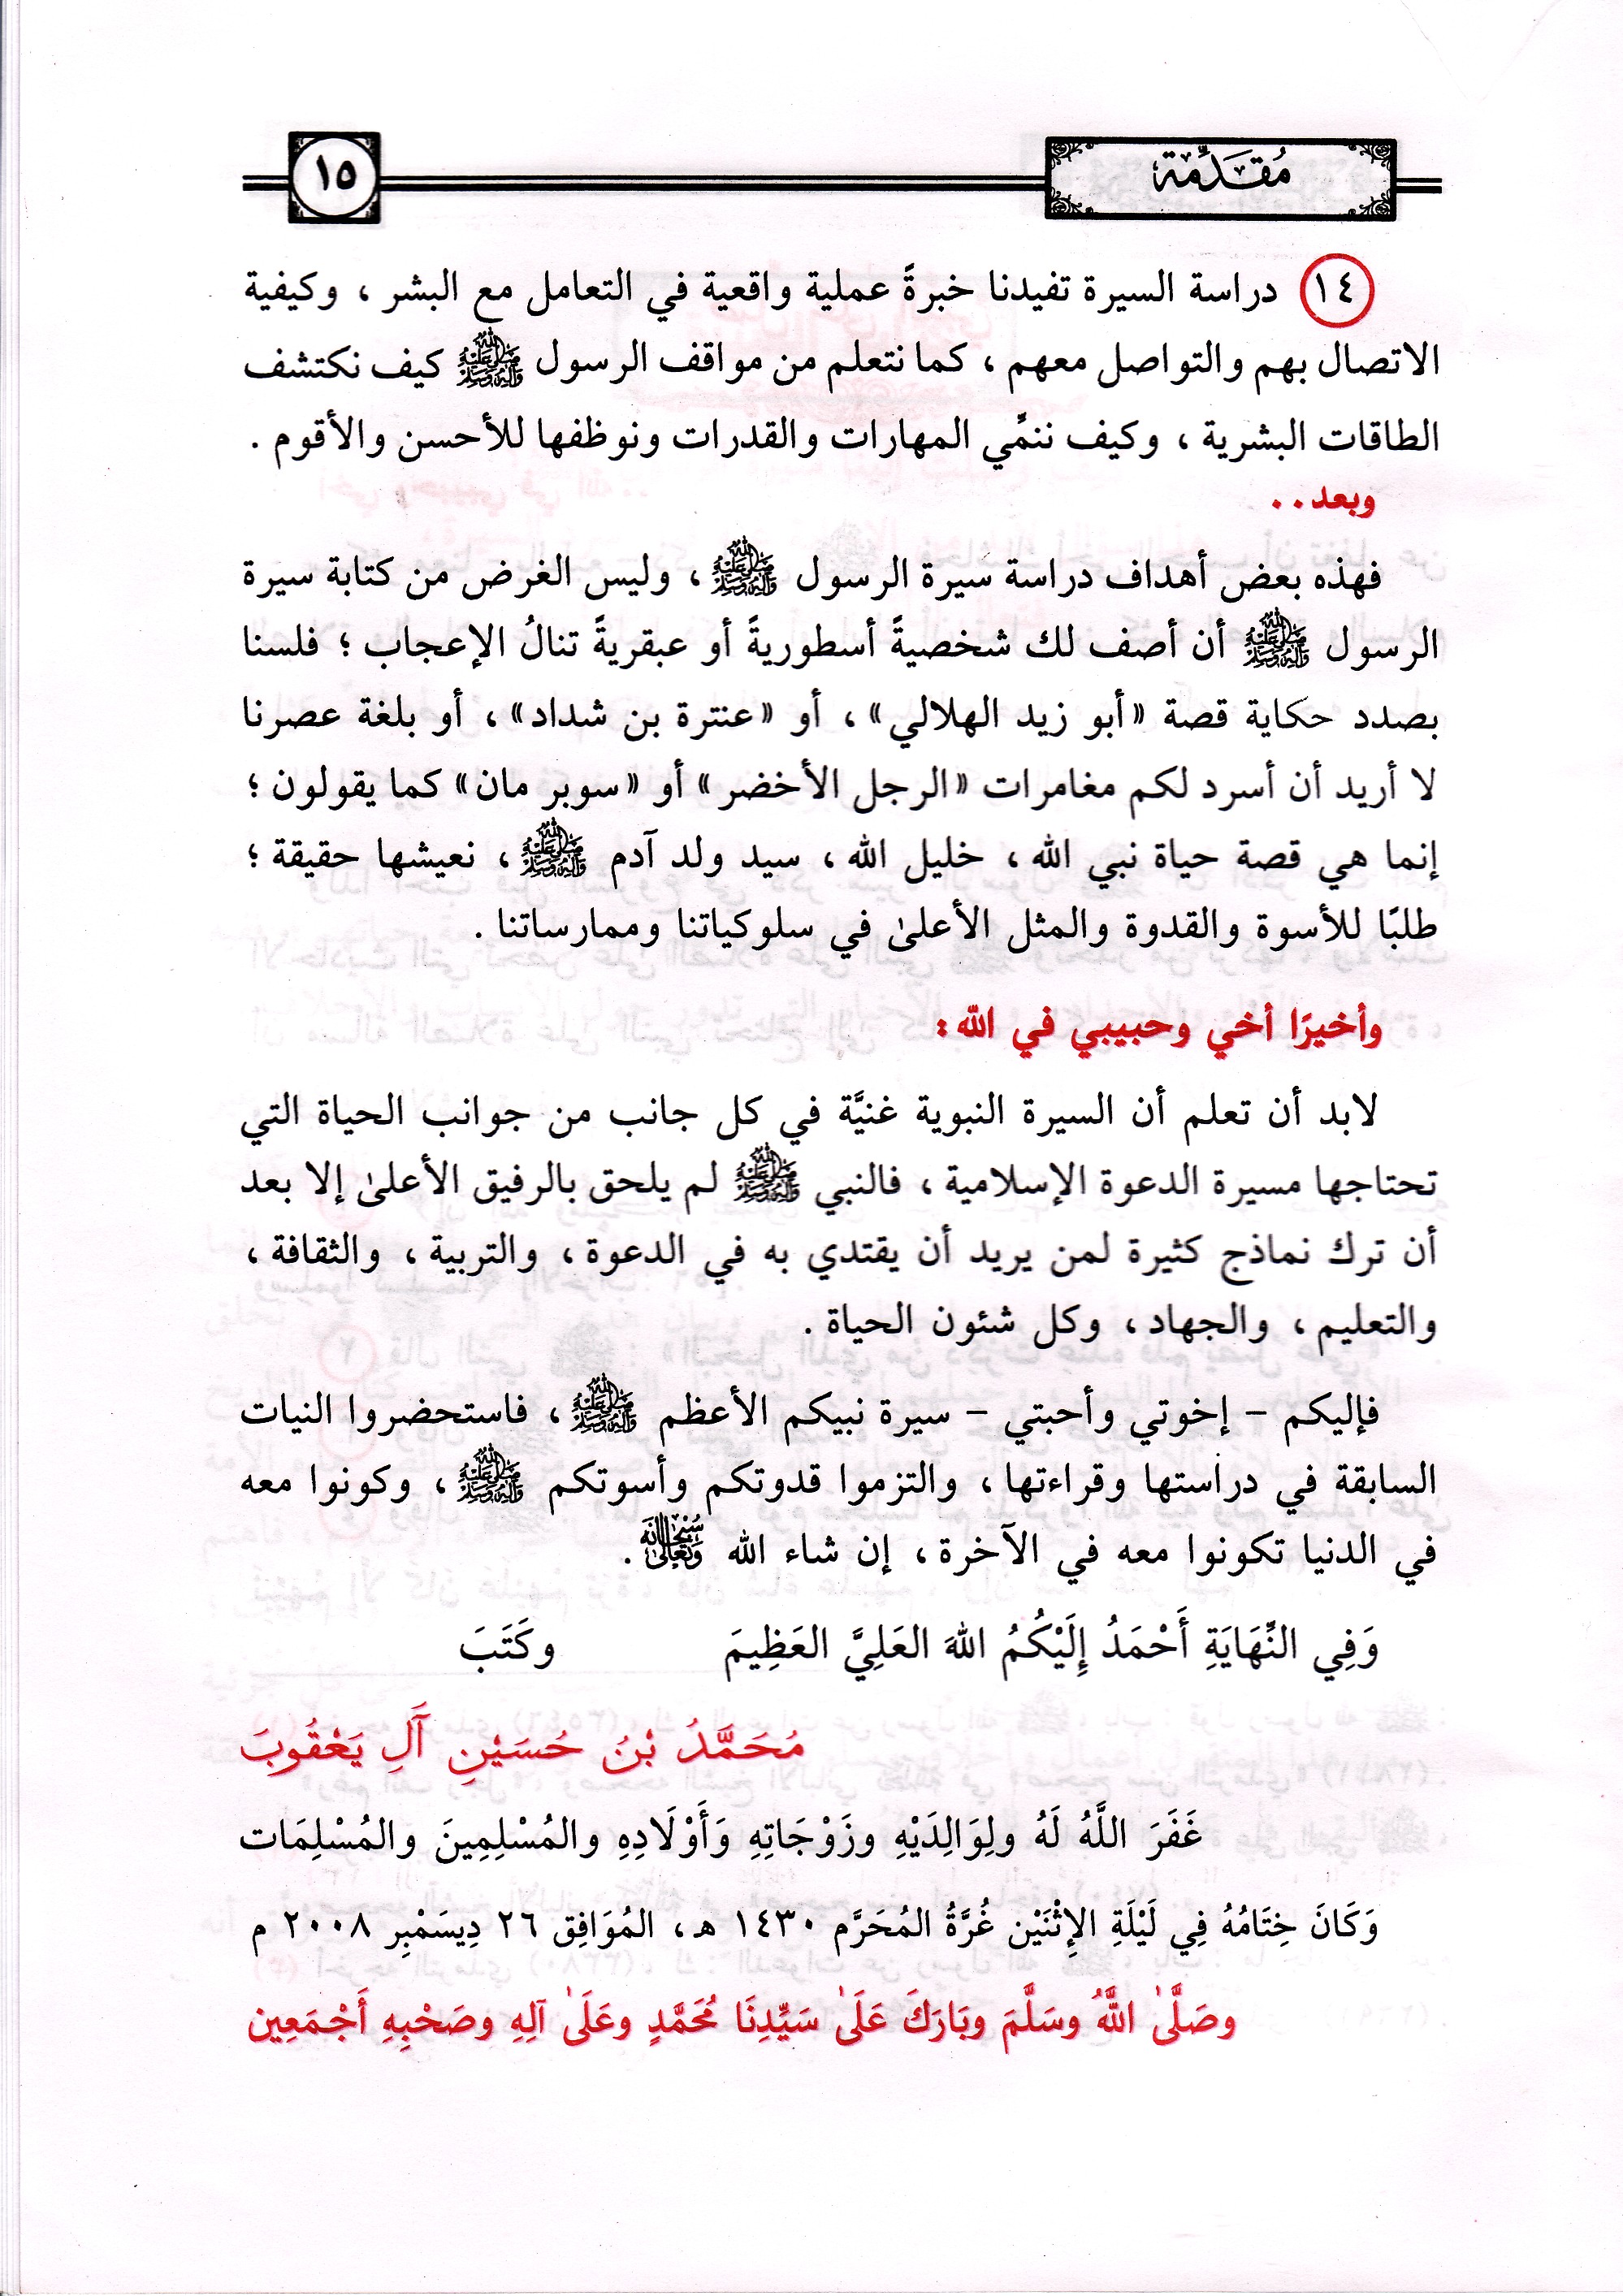 مُقَدِّمة
١٥
١٤ دراسة السيرة تفيدنا خبرةً عملية واقعية في التعامل مع البشر ، وكيفية
الاتصال بهم والتواصل معهم ، كما نتعلم من مواقف الرسول ﷺ كيف نكتشف
الطاقات البشرية ، وكيف ننمِّي المهارات والقدرات ونوظفها للأحسن والأقوم .
وبعد . .
فهذه بعض أهداف دراسة سيرة الرسول ﷺ ، وليس الغرض من كتابة سيرة
الرسول ﷺ أن أصف لك شخصيةً أسطوريةً أو عبقريةً تنالُ الإعجاب ؛ فلسنا
بصدد حكاية قصة «أبو زيد الهلالي» ، أو «عنترة بن شداد» ، أو بلغة عصرنا
لا أريد أن أسرد لكم مغامرات «الرجل الأخضر» أو «سوبر مان» كما يقولون ؛
إنما هي قصة حياة نبي الله ، خليل الله ، سيد ولد آدم ﷺ ، نعيشها حقيقة ؛
طلبًا للأسوة والقدوة والمثل الأعلىٰ في سلوكياتنا وممارساتنا .
وأخيرًا أخي وحبيبي في الله :
لابد أن تعلم أن السيرة النبوية غنيَّة في كل جانب من جوانب الحياة التي
تحتاجها مسيرة الدعوة الإسلامية ، فالنبي ﷺ لم يلحق بالرفيق الأعلىٰ إلا بعد
أن ترك نماذج كثيرة لمن يريد أن يقتدي به في الدعوة ، والتربية ، والثقافة ،
والتعليم ، والجهاد ، وكل شئون الحياة .
فإليكم – إخوتي وأحبتي – سيرة نبيكم الأعظم ﷺ ، فاستحضروا النيات
السابقة في دراستها وقراءتها ، والتزموا قدوتكم وأسوتكم ﷺ ، وكونوا معه
في الدنيا تكونوا معه في الآخرة ، إن شاء الله سُبْحَانَهُ وَتَعَالَىٰ .
وَفِي النِّهَايَةِ أَحْمَدُ إِلَيْكُمُ اللهَ العَلِيَّ العَظِيمَ وكَتَبَ
مُحَمَّدُ بْنُ حُسَيْنِ آلِ يَعْقُوبَ
غَفَرَ اللَّهُ لَهُ ولِوَالِدَيْهِ وزَوْجَاتِهِ وَأَوْلَادِهِ والمُسْلِمِينَ والمُسْلِمَات
وَكَانَ خِتَامُهُ فِي لَيْلَةِ الإِثْنَيْن غُرَّةُ المُحَرَّم ١٤٣٠ هـ ، المُوَافِق ٢٦ دِيسَمْبِر ٢٠٠٨ م
وصَلَّىٰ اللَّهُ وسَلَّمَ وبَارَكَ عَلَىٰ سَيِّدِنَا مُحَمَّدٍ وعَلَىٰ آلِهِ وصَحْبِهِ أَجْمَعِين